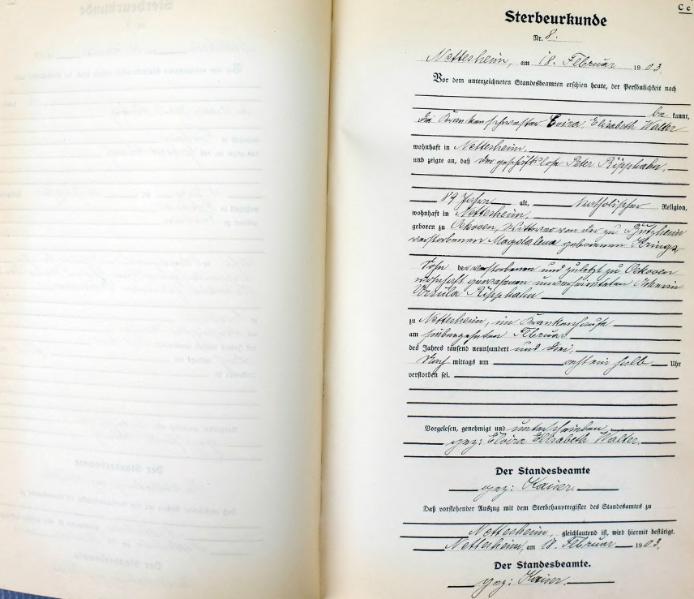 C c
Sterbeurkunde
Nr. 8.
Nettersheim, am 18. Februar 1903.
Vor dem unterzeichneten Standesbeamten erschien heute, der Persönlichkeit nach
be kannt,
die Krankenschwester Elvira Elisabeth Walter
wohnhaft in Nettersheim,
und zeigte an, daß der geschäftslose Peter Ripphahn,
87 Jahre alt, katholischer Religion,
wohnhaft in Nettersheim,
geboren zu Ockosen, Wittwer von der zu
verstorbenen Magdalena geborenen
Sohn der verstorbenen und zuletzt zu Ockosen
wohnhaft gewesenen unverheirateten
Ursula Ripphahn
zu Nettersheim, im Krankenhause
am siebenzehnten Februar
des Jahres tausend neunhundert und drei,
Nachmittags um acht ein halb Uhr
verstorben sei.
Vorgelesen, genehmigt und unterschrieben
gez: Elvira Elisabeth Walter.
Der Standesbeamte
gez: Kaiser.
Daß vorstehender Auszug mit dem Sterbehauptregister des Standesamtes zu
Nettersheim, gleichlautend ist, wird hiermit bestätigt.
Nettersheim, am 18. Februar 1903.
Der Standesbeamte.
gez: Kaiser.